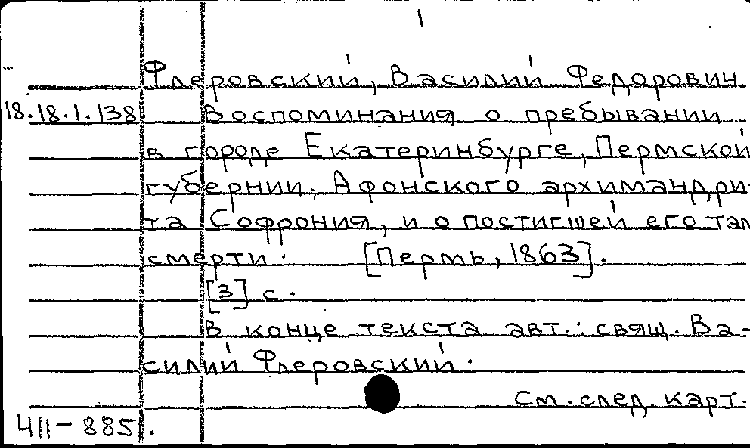 1
Флеровский, Василий Федорович.
18.18.1.138 Воспоминания о пребывании
в городе Екатеринбурге, Пермской
губернии. Афонского архимандри-
та Софрония, и о постигшей его там
смерти. [Пермь, 1863].
[3] с.
В конце текста авт.: свящ. Ва-
силий Флеровский.
См. след. карт.
411-885.